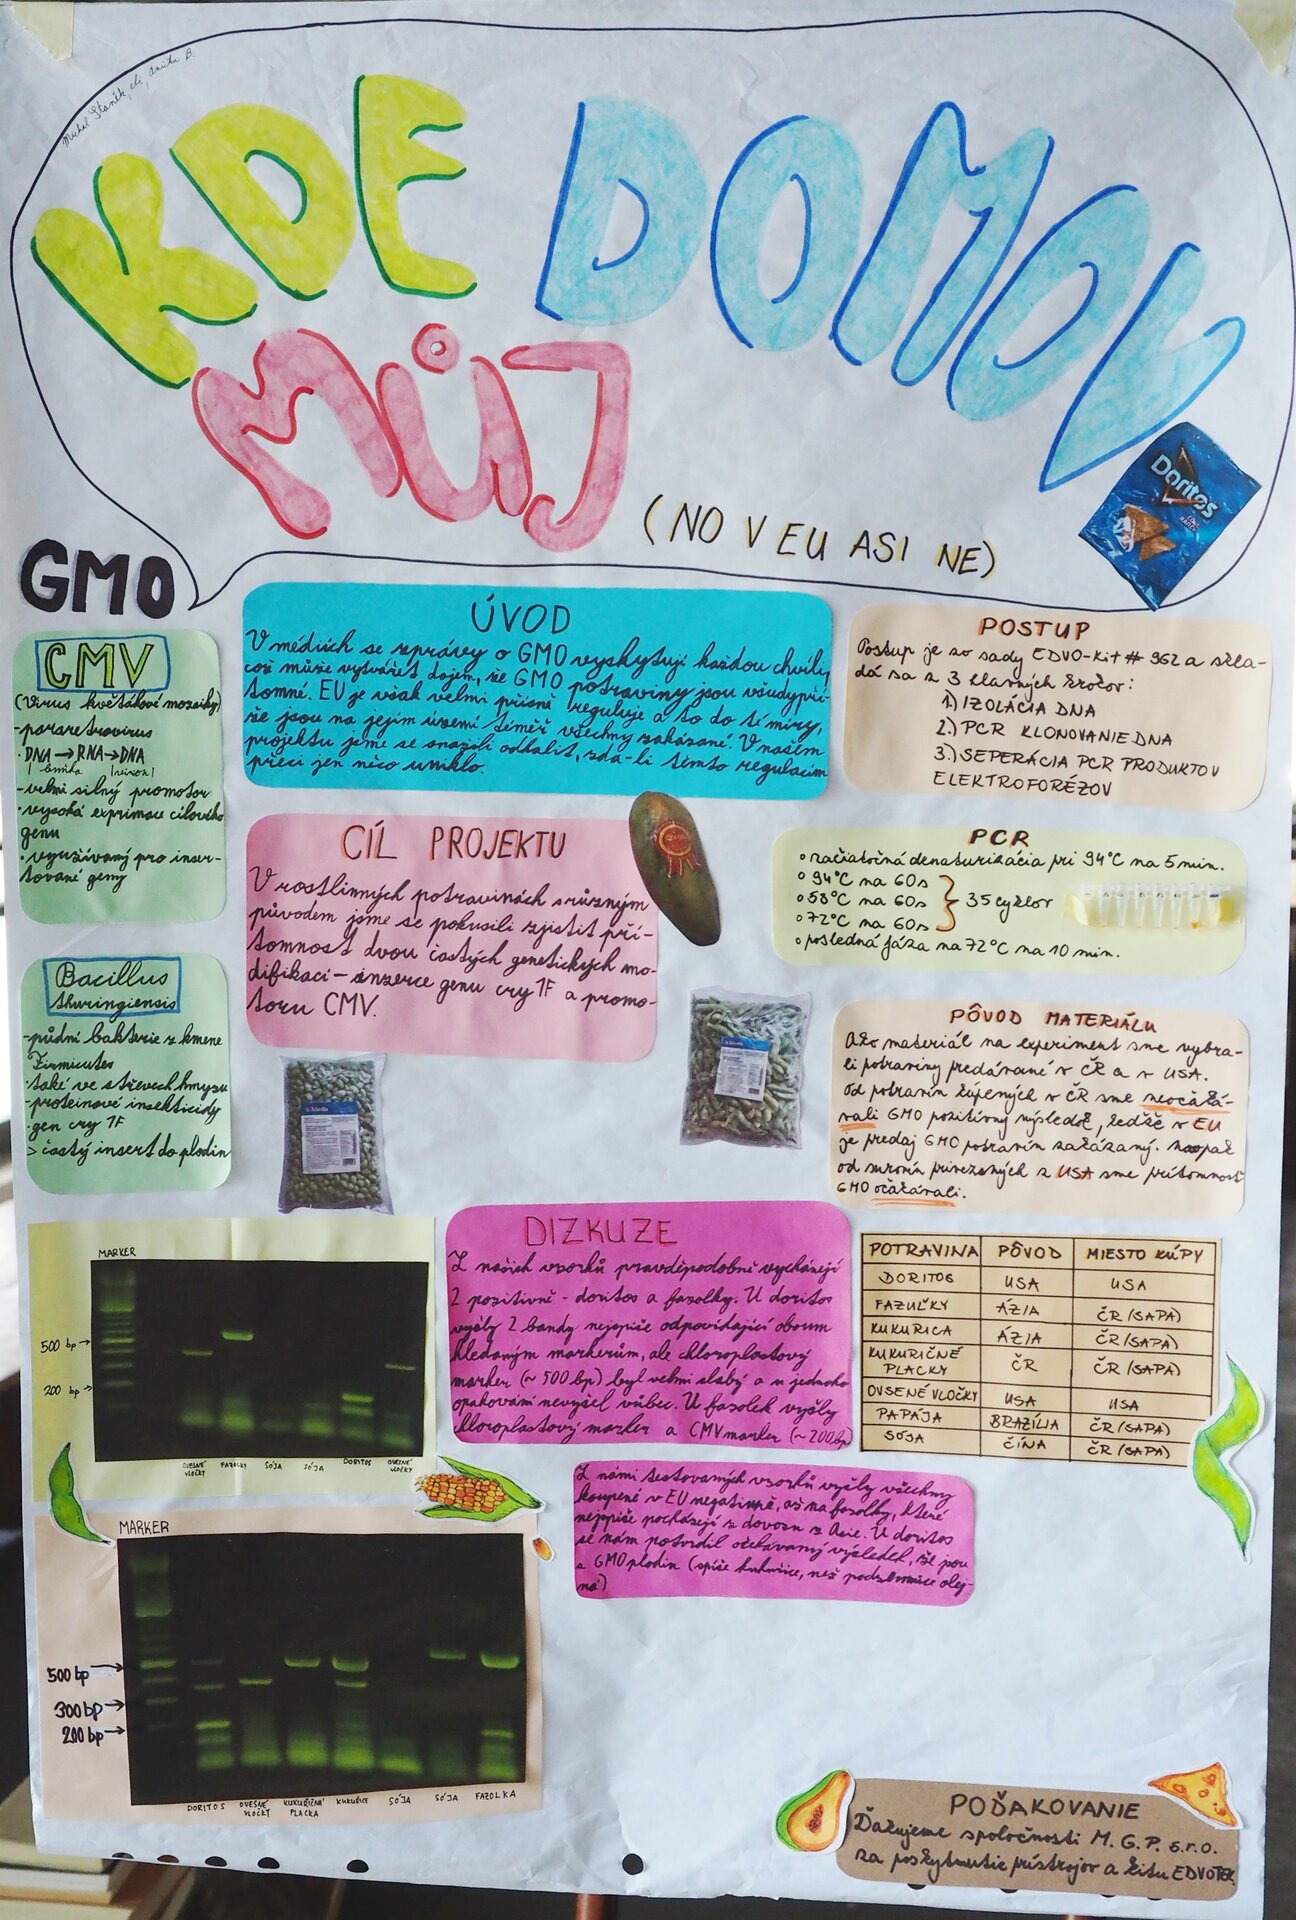 Michal Staněk, eli, Anička B.
KDE DOMOV
MŮJ
(NO V EU ASI NE)
Doritos
GMO
CMV
(Virus květákové mozaiky)
- pararetrovirus
· DNA → RNA → DNA
- velmi silný promotor
· vysoká exprimace cílového
genu
· využívaný pro inser-
tované geny
Bacillus
thuringiensis
- půdní bakterie z kmene
Firmicutes
· také ve střevech hmyzu
- proteinové insekticidy
· gen cry 1F
> častý insert do plodin
ÚVOD
V médiích se zprávy o GMO vyskytují každou chvíli,
což může vytvářet dojem, že GMO potraviny jsou všudypří-
tomné. EU je však velmi přísně reguluje a to do té míry,
že jsou na jejím území téměř všechny zakázané. V našem
projektu jsme se snažili odhalit, zda-li těmto regulacím
přeci jen něco uniklo.
CÍL PROJEKTU
V rostlinných potravinách s různým
původem jsme se pokusili zjistit pří-
tomnost dvou častých genetických mo-
difikací - inzerce genu cry 1F a promo-
toru CMV.
POSTUP
Postup je zo sady EDVO-Kit # 962 a skla-
dá sa z 3 hlavných krokov:
1.) IZOLÁCIA DNA
2.) PCR KLONOVANIE DNA
3.) SEPERÁCIA PCR PRODUKTOV
ELEKTROFORÉZOV
PCR
° začiatočná denaturizácia pri 94°C na 5 min.
° 94°C na 60s
° 58°C na 60s } 35 cyklov
° 72°C na 60s
° posledná fáza na 72°C na 10 min.
PÔVOD MATERIÁLU
Ako materiál na experiment sme vybra-
li potraviny predávané v ČR a v USA.
Od potravín kúpených v ČR sme neočaká-
vali GMO pozitívny výsledok, keďže v EU
je predaj GMO potravín zakázaný. Naopak
od surovín privezených z USA sme prítomnosť
GMO očakávali.
DIZKUZE
Z našich vzorků pravděpodobně vycházejí
2 pozitivně - doritos a fazolky. U doritos
vyšly 2 bandy nejspíše odpovídající oboum
hledaným markerům, ale chloroplastový
marker (~ 500 bp) byl velmi slabý a u jednoho
opakování nevyšel vůbec. U fazolek vyšly
chloroplastový marker a CMV marker (~ 200 bp)
Z námi testovaných vzorků vyšly všechny
koupené v EU negativně, až na fazolky, které
nejspíše pocházejí z dovozu z Asie. U doritos
se nám potvrdil očekávaný výsledek, že jsou
z GMO plodin (spíše kukuřice, než podzemnice olej-
ná)
POTRAVINA PÔVOD MIESTO KÚPY
DORITOS USA USA
FAZUĽKY ÁZIA ČR (SAPA)
KUKURICA ÁZIA ČR (SAPA)
KUKURIČNÉ PLACKY ČR ČR (SAPA)
OVSENÉ VLOČKY USA USA
PAPÁJA BRAZÍLIA ČR (SAPA)
SÓJA ČÍNA ČR (SAPA)
MARKER
500 bp →
200 bp →
OVESNÉ VLOČKY FAZOLKY SÓJA SÓJA DORITOS OVESNÉ VLOČKY
MARKER
500 bp →
300 bp →
200 bp →
DORITOS OVESNÉ VLOČKY KUKUŘIČNÁ PLACKA KUKUŘICE SÓJA SÓJA FAZOLKA
POĎAKOVANIE
Ďakujeme spoločnosti M.G.P. s.r.o.
za poskytnutie prístrojov a kitu EDVOTEK